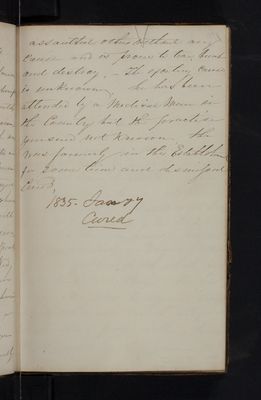 assaulted others without any
cause and is prone to tear, break
and destroy. - The exciting cause
is unknown, he has been
attended by a Medical Man in
the Country but the practice
pursued not known. He
was formerly in this Establishment
for some time and discharged
Cured
1835. Jany
Cured